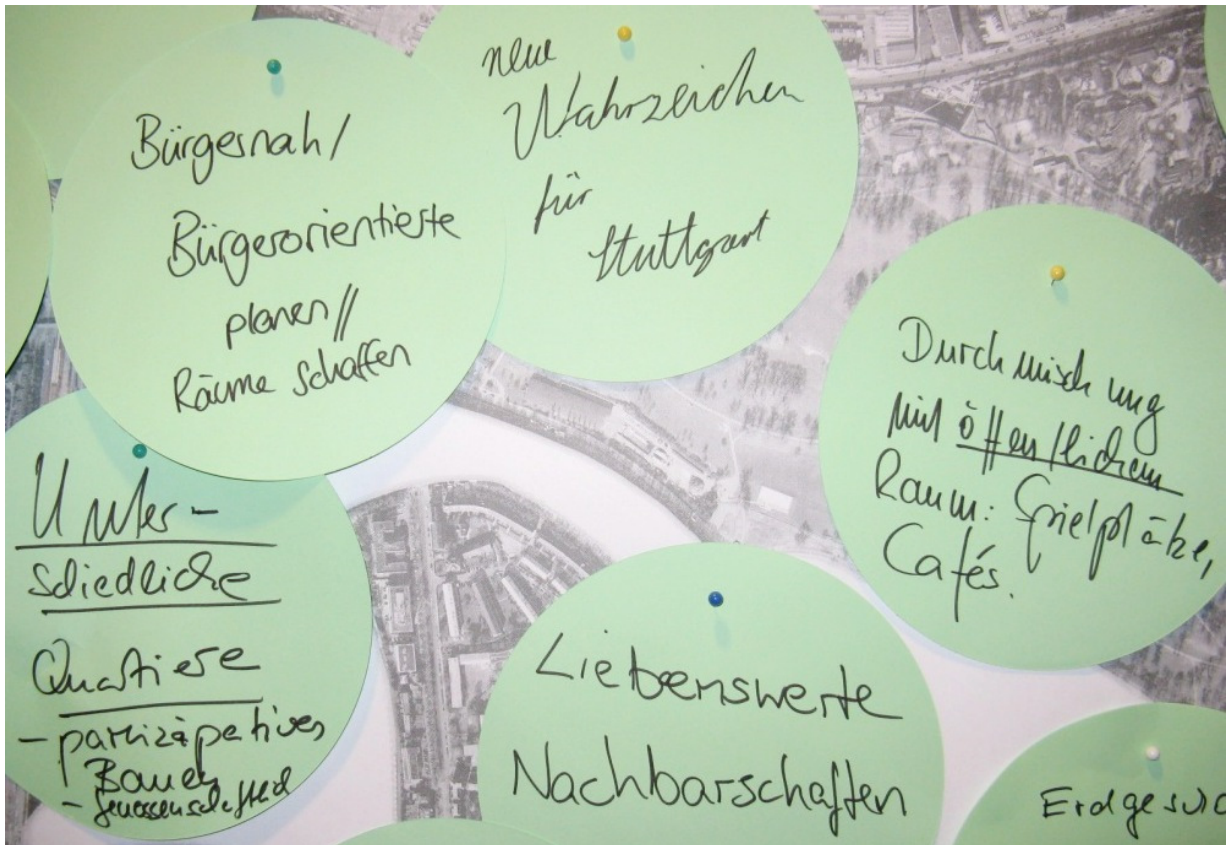 Bürgernah/
Bürgerorientierte
planen//
Räume schaffen
neue
Wahrzeichen
für
Stuttgart
Durchmischung
mit öffentlichem
Raum: Spielplätze,
Cafés.
Unter-
schiedliche
Quartiere
- partizipatives
Bauen
- genossenschaftlich
Liebenswerte
Nachbarschaften
Erdgesch